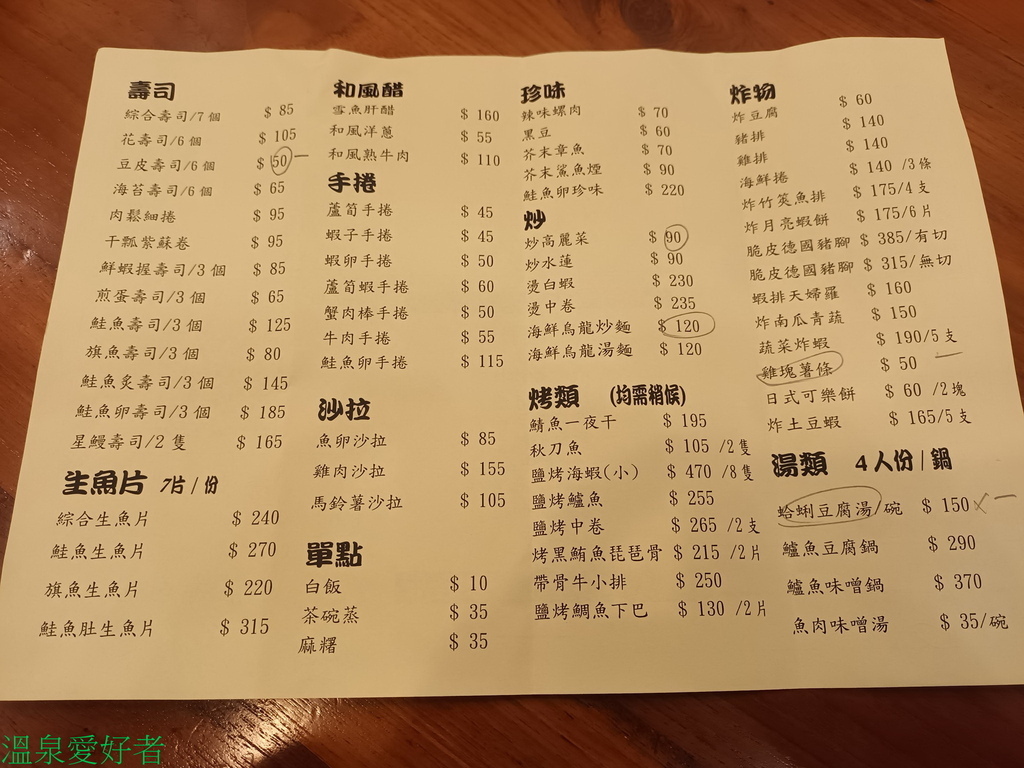 壽司
綜合壽司/7個 $ 85
花壽司/6個 $ 105
豆皮壽司/6個 $ 50
海苔壽司/6個 $ 65
肉鬆細捲 $ 95
干瓢紫蘇卷 $ 95
鮮蝦握壽司/3個 $ 85
煎蛋壽司/3個 $ 65
鮭魚壽司/3個 $ 125
旗魚壽司/3個 $ 80
鮭魚炙壽司/3個 $ 145
鮭魚卵壽司/3個 $ 185
星鰻壽司/2隻 $ 165
生魚片 7片/份
綜合生魚片 $ 240
鮭魚生魚片 $ 270
旗魚生魚片 $ 220
鮭魚肚生魚片 $ 315
和風醋
雪魚肝醋 $ 160
和風洋蔥 $ 55
和風熟牛肉 $ 110
手捲
蘆筍手捲 $ 45
蝦子手捲 $ 45
蝦卵手捲 $ 50
蘆筍蝦手捲 $ 60
蟹肉棒手捲 $ 50
牛肉手捲 $ 55
鮭魚卵手捲 $ 115
沙拉
魚卵沙拉 $ 85
雞肉沙拉 $ 155
馬鈴薯沙拉 $ 105
單點
白飯 $ 10
茶碗蒸 $ 35
麻糬 $ 35
珍味
辣味螺肉 $ 70
黑豆 $ 60
芥末章魚 $ 70
芥末鯊魚煙 $ 90
鮭魚卵珍味 $ 220
炒
炒高麗菜 $ 90
炒水蓮 $ 90
燙白蝦 $ 230
燙中卷 $ 235
海鮮烏龍炒麵 $ 120
海鮮烏龍湯麵 $ 120
烤類 (均需稍候)
鯖魚一夜干 $ 195
秋刀魚 $ 105 /2隻
鹽烤海蝦(小) $ 470 /8隻
鹽烤鱸魚 $ 255
鹽烤中卷 $ 265 /2支
烤黑鮪魚琵琶骨 $ 215 /2片
帶骨牛小排 $ 250
鹽烤鯛魚下巴 $ 130 /2片
炸物
炸豆腐 $ 60
豬排 $ 140
雞排 $ 140
海鮮捲 $ 140 /3條
炸竹筴魚排 $ 175/4支
炸月亮蝦餅 $ 175/6片
脆皮德國豬腳 $ 385/有切
脆皮德國豬腳 $ 315/無切
蝦排天婦羅 $ 160
炸南瓜青蔬 $ 150
蔬菜炸蝦 $ 190/5支
雞塊薯條 $ 50
日式可樂餅 $ 60 /2塊
炸土豆蝦 $ 165/5支
湯類 4人份/鍋
蛤蜊豆腐湯/碗 $ 150
鱸魚豆腐鍋 $ 290
鱸魚味噌鍋 $ 370
魚肉味噌湯 $ 35/碗
溫泉愛好者